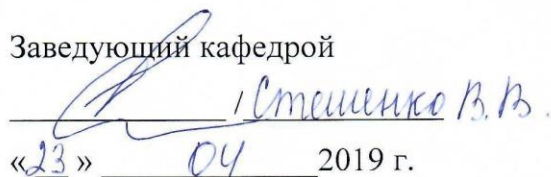 Заведующий кафедрой
/ Стешенко В.В.
«23» 04 2019 г.